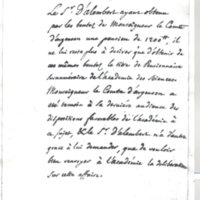 Le Sr. d'alembert ayant obtenu
par les bontés de Monseigneur le Comte
d'argenson une pension de 1200 ll. il
ne lui reste plus à desirer que d'obtenir de
ses mêmes bontés, le titre de Pensionnaire
surnuméraire de l'académie des Sciences.
Monseigneur le Comte d'argenson a
été témoin à la derniere audience des
dispositions favorables de l'académie à
ce sujet, & le Sr. d'alembert n'a d'autre
grace à lui demander, que de vouloir
bien renvoyer à l'académie la deliberation
sur cette affaire.